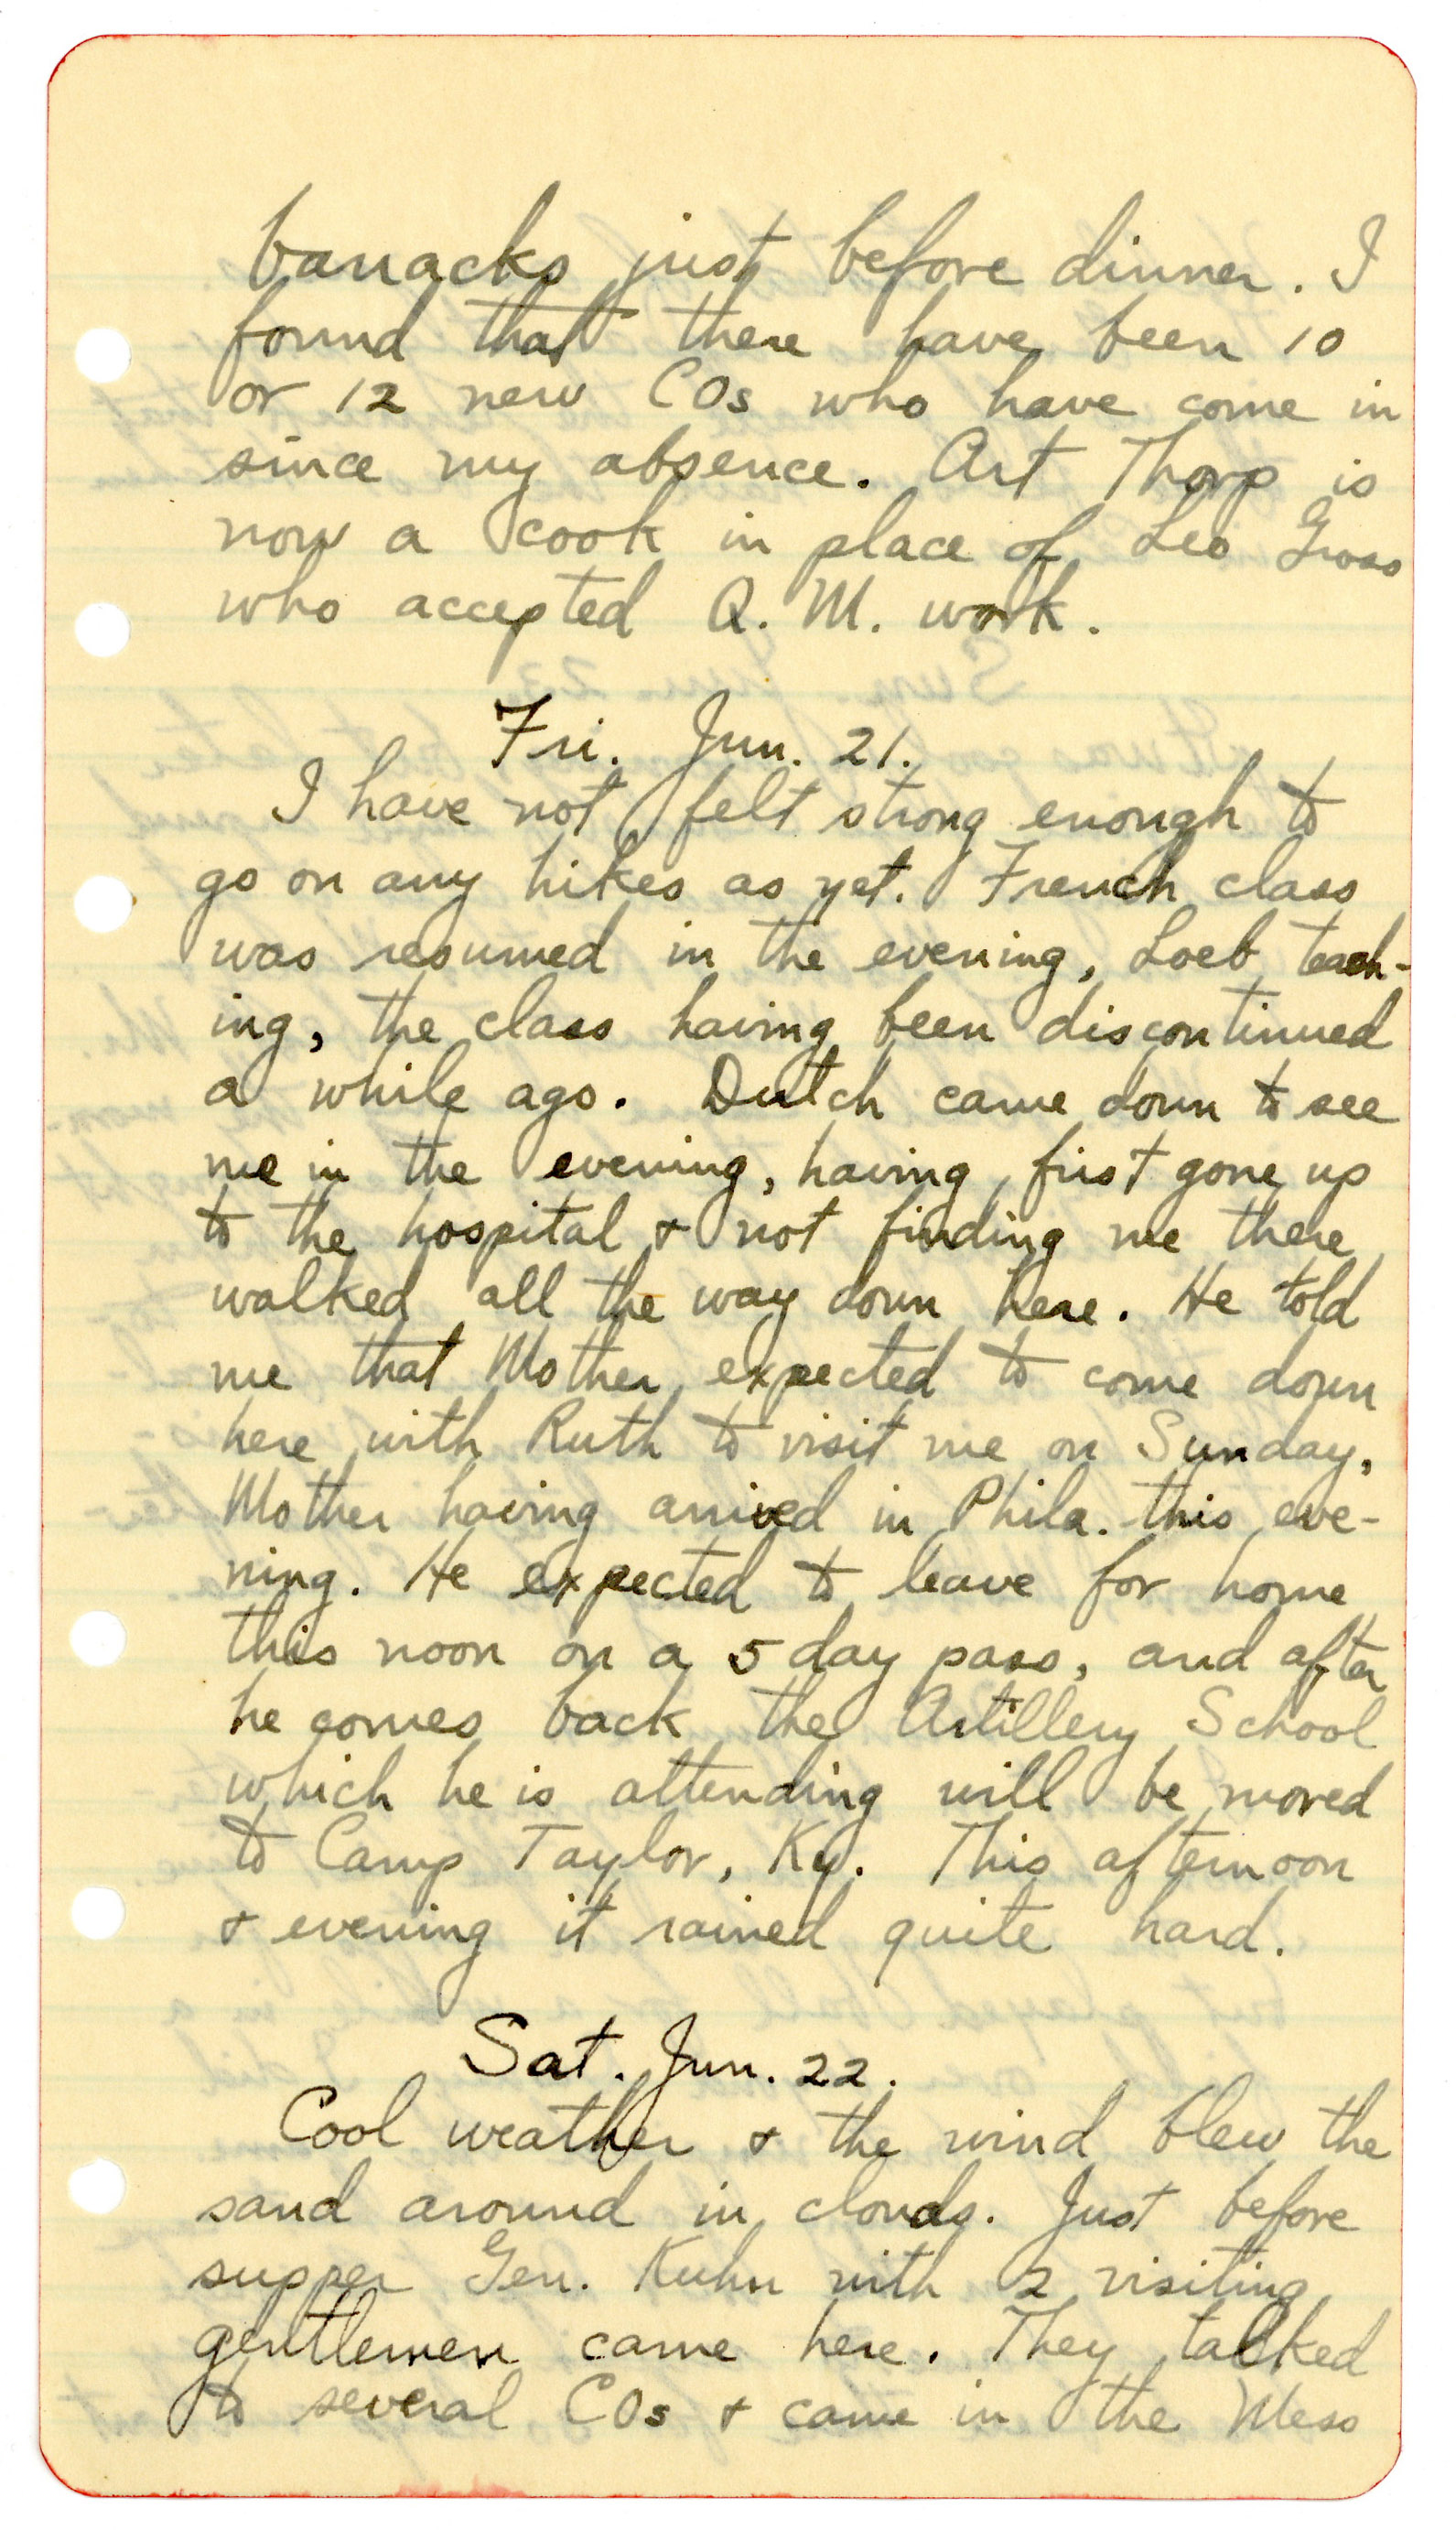 barracks just before dinner. I
found that there have been 10
or 12 new COs who have come in
since my absence. Art Thorp is
now a cook in place of Leo Gross
who accepted Q. M. work.
Fri. Jun. 21.
I have not felt strong enough to
go on any hikes as yet. French class
was resumed in the evening, Loeb teach-
ing, the class having been discontinued
a while ago. Dutch came down to see
me in the evening, having first gone up
to the hospital & not finding me there
walked all the way down here. He told
me that Mother expected to come down
here with Ruth to visit me on Sunday,
Mother having arrived in Phila. this eve-
ning. He expected to leave for home
this noon on a 5 day pass, and after
he comes back the Artillery School
which he is attending will be moved
to Camp Taylor, Ky. This afternoon
& evening it rained quite hard.
Sat. Jun. 22.
Cool weather & the wind blew the
sand around in clouds. Just before
supper Gen. Kuhn with 2 visiting
gentlemen came here. They talked
to several COs & came in the Mess